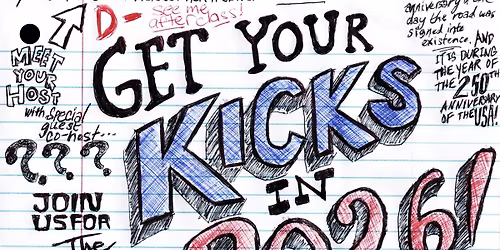 D-
see me
after class!
GET YOUR
KICKS
IN
2026!
MEET
YOUR
HOST
with special
guest
co-host...
? ? ?
JOIN
US FOR
The
anniversary
day the road was
signed into
existence, AND
IT IS DURING
THE YEAR OF
THE 250th
ANNIVERSARY
OF THE USA!